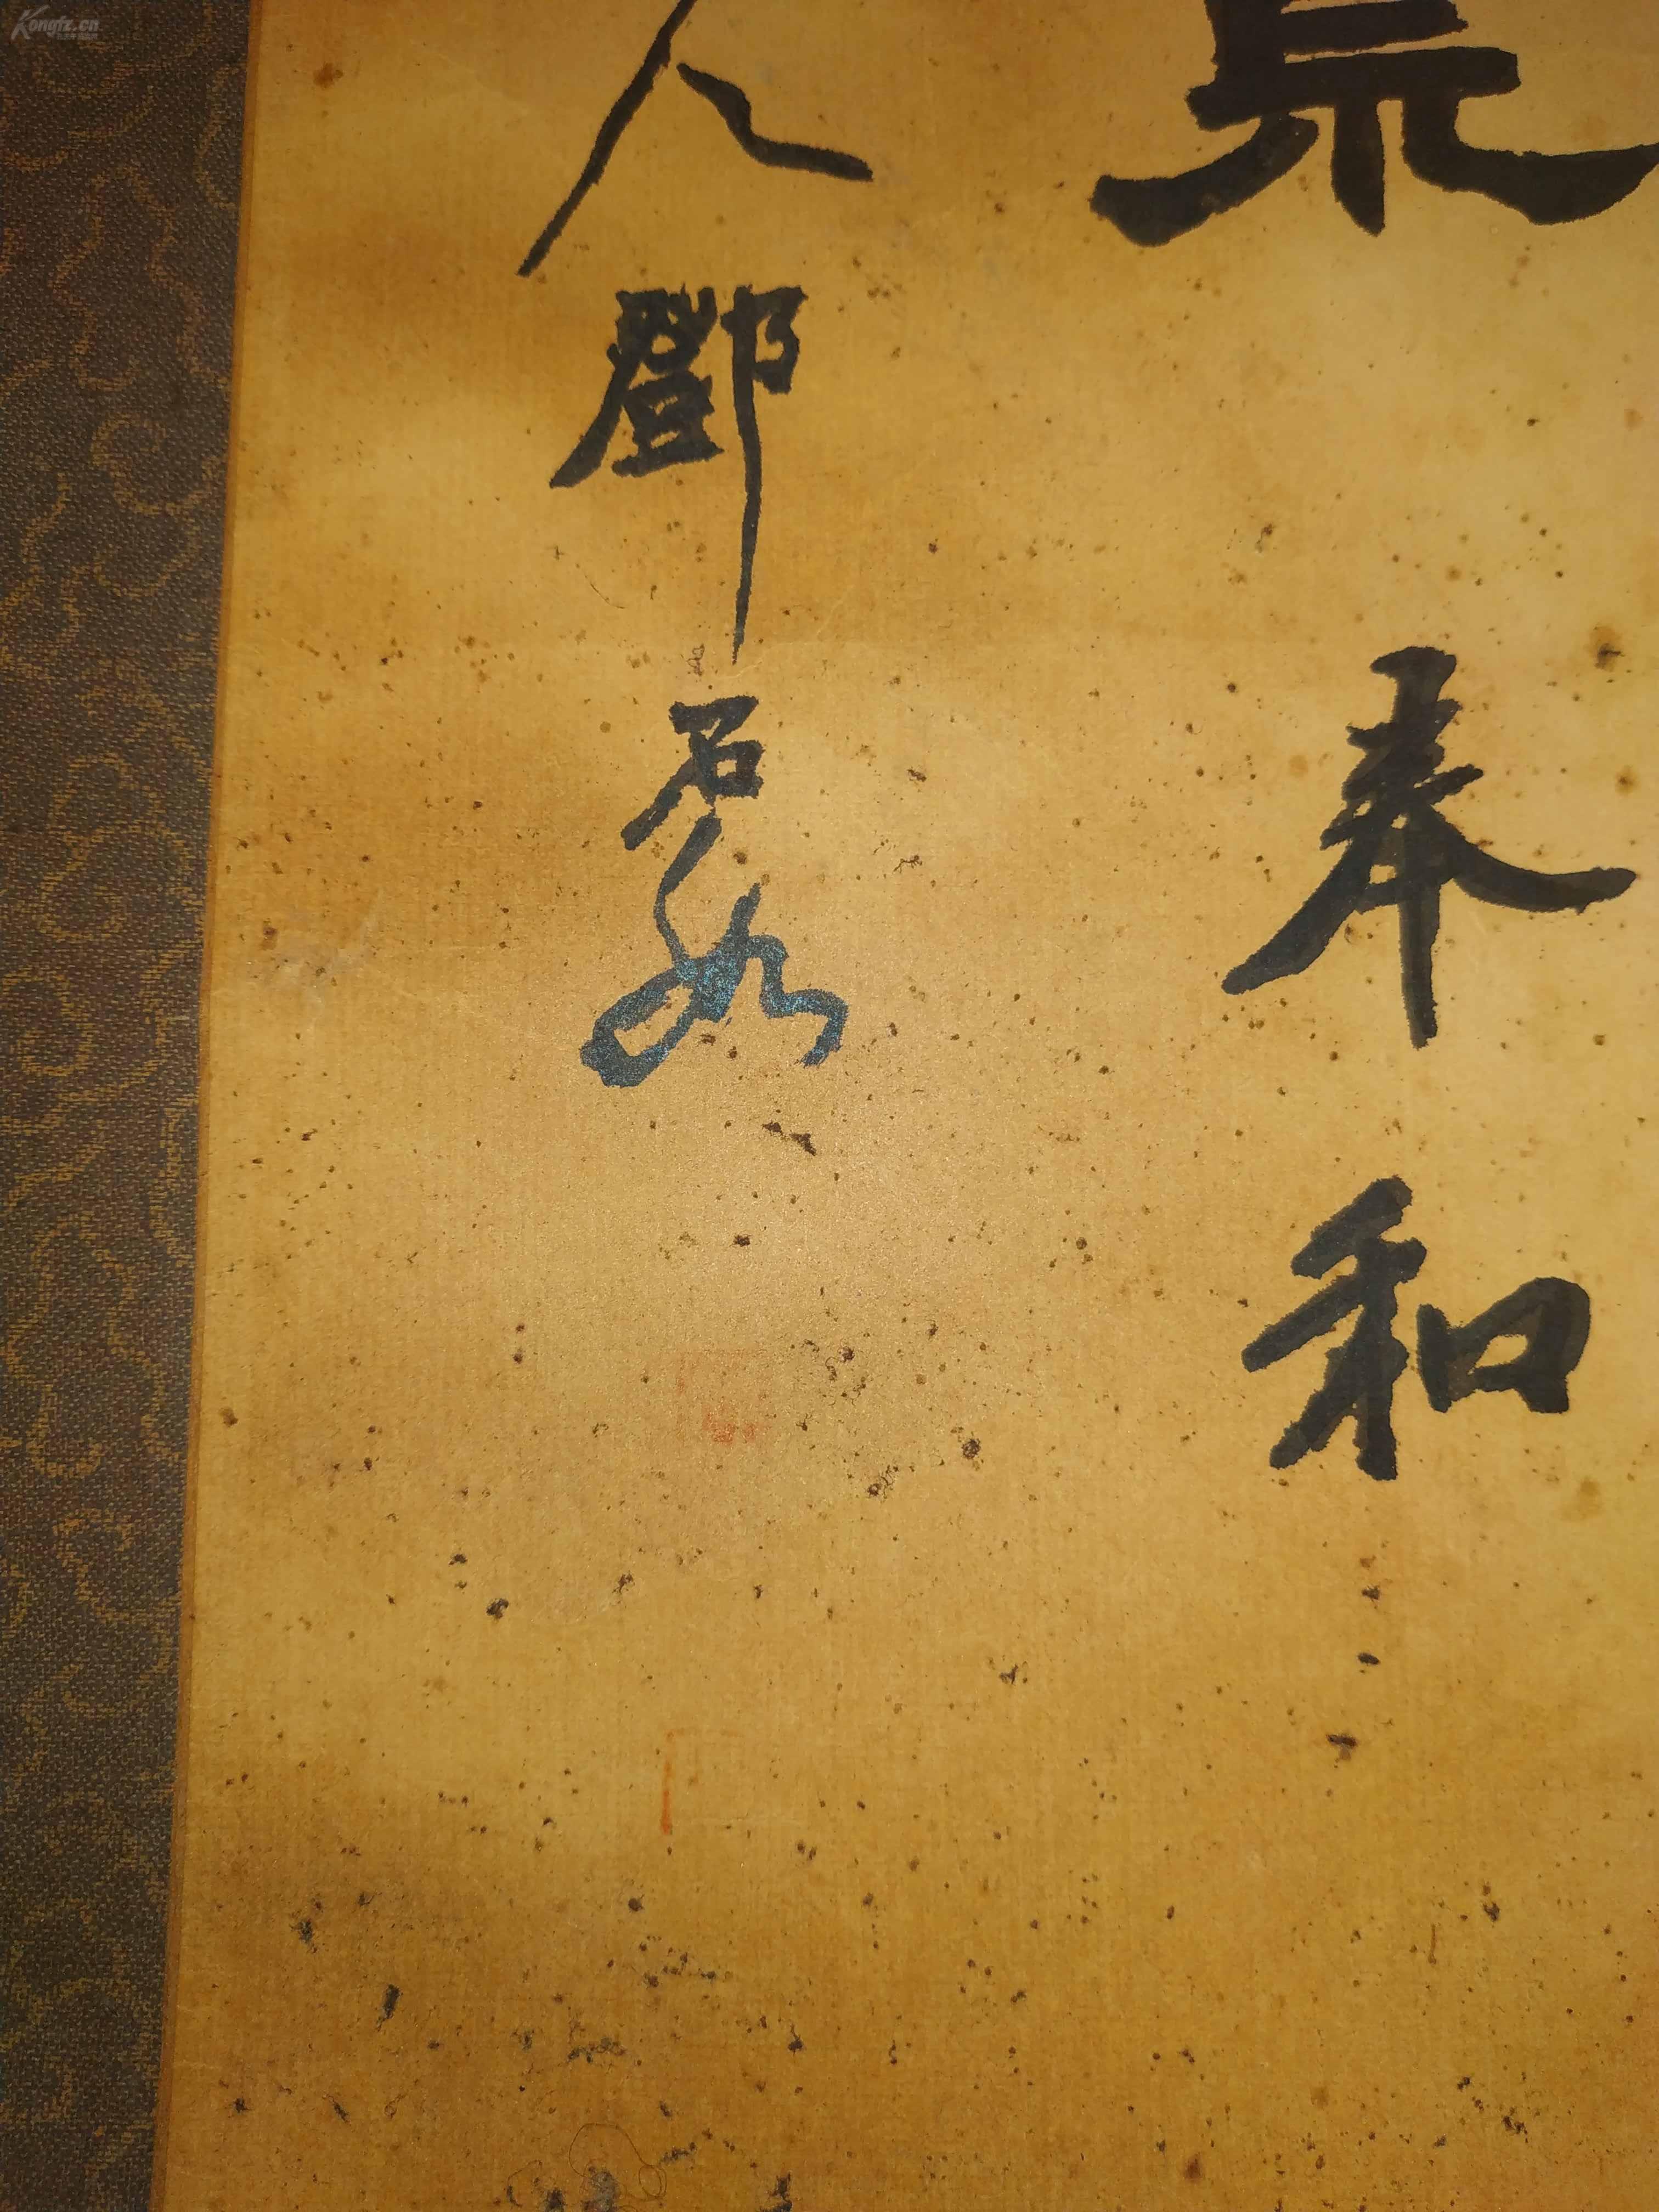 奉和
人鄧石如
Kongfz.cn